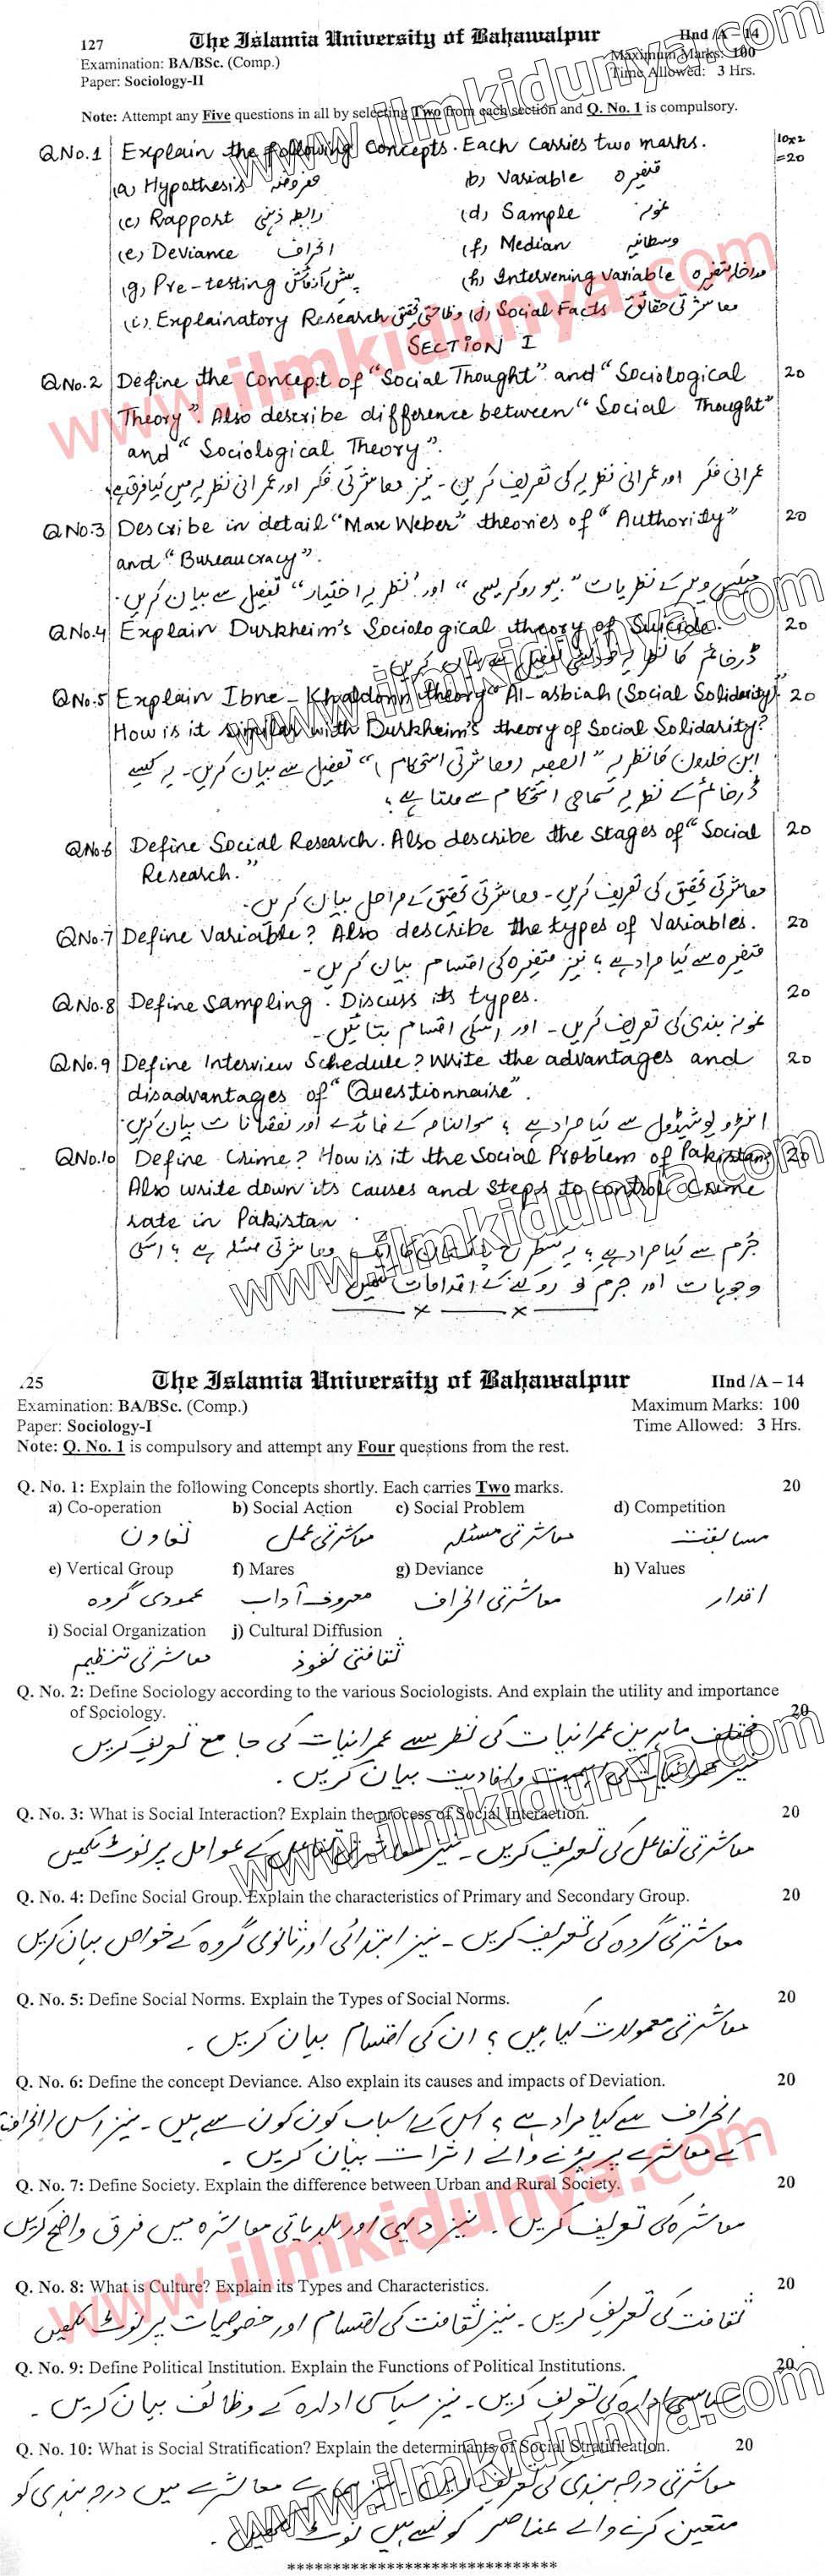 127
The Islamia University of Bahawalpur
IInd /A – 14
Examination: BA/BSc. (Comp.)
Maximum Marks: 100
Paper: Sociology-II
Time Allowed: 3 Hrs.
Note: Attempt any Five questions in all by selecting Two from each section and Q. No. 1 is compulsory.
Q No. 1 Explain the following concepts. Each carries two marks. 10x2 =20
(a) Hypothesis مفروضہ (b) Variable متغیرہ
(c) Rapport رابطہ ذہنی (d) Sample نمونہ
(e) Deviance انحراف (f) Median وسطانیہ
(g) Pre-testing پیش آزمائش (h) Intervening Variable مداخلہ متغیرہ
(i) Explainatory Research وضاحتی تحقیق (j) Social Facts معاشرتی حقائق
SECTION I
Q No. 2 Define the concept of "Social Thought" and "Sociological 20
Theory". Also describe difference between "Social Thought"
and "Sociological Theory".
عمرانی فکر اور عمرانی نظریہ کی تعریف کریں۔ نیز معاشرتی فکر اور عمرانی نظریہ میں کیا فرق ہے؟
Q No. 3 Describe in detail "Max Weber" theories of "Authority" 20
and "Bureaucracy".
میکس ویبر کے نظریات "بیوروکریسی" اور "نظریہ اختیار" تفصیل سے بیان کریں۔
Q No. 4 Explain Durkheim's Sociological theory of Suicide. 20
ڈرخائم کا نظریہ خودکشی تفصیل سے بیان کریں۔
Q No. 5 Explain Ibne-Khaldonn theory "Al-asbiah (Social Solidarity)" 20
How is it similar with Durkheim's theory of Social Solidarity?
ابن خلدون کا نظریہ "العصبہ (معاشرتی استحکام)" تفصیل سے بیان کریں۔ یہ کیسے
ڈرخائم کے نظریہ سماجی استحکام سے ملتا ہے؟
Q No. 6 Define Social Research. Also describe the stages of "Social 20
Research."
معاشرتی تحقیق کی تعریف کریں۔ معاشرتی تحقیق کے مراحل بیان کریں۔
Q No. 7 Define Variable? Also describe the types of Variables. 20
متغیرہ سے کیا مراد ہے؟ نیز متغیرہ کی اقسام بیان کریں۔
Q No. 8 Define Sampling. Discuss its types. 20
نمونہ بندی کی تعریف کریں۔ اور اسکی اقسام بتائیں۔
Q No. 9 Define Interview Schedule? Write the advantages and 20
disadvantages of "Questionnaire".
انٹرویو شیڈول سے کیا مراد ہے؟ سوالنامہ کے فائدے اور نقصانات بیان کریں۔
Q No. 10 Define Crime? How is it the Social Problem of Pakistan? 20
Also write down its causes and steps to control Crime
rate in Pakistan.
جرم سے کیا مراد ہے؟ یہ کسطرح پاکستان کا معاشرتی مسئلہ ہے؟ اسکی
وجوہات اور جرم کو روکنے کے اقدامات لکھیں
.25
The Islamia University of Bahawalpur
IInd /A – 14
Examination: BA/BSc. (Comp.)
Maximum Marks: 100
Paper: Sociology-I
Time Allowed: 3 Hrs.
Note: Q. No. 1 is compulsory and attempt any Four questions from the rest.
Q. No. 1: Explain the following Concepts shortly. Each carries Two marks. 20
a) Co-operation b) Social Action c) Social Problem d) Competition
تعاون معاشرتی عمل معاشرتی مسئلہ مسابقت
e) Vertical Group f) Mares g) Deviance h) Values
عمودی گروہ معروف آداب معاشرتی انحراف اقدار
i) Social Organization j) Cultural Diffusion
معاشرتی تنظیم ثقافتی نفوذ
Q. No. 2: Define Sociology according to the various Sociologists. And explain the utility and importance
of Sociology. 20
مختلف ماہرین عمرانیات کی نظر سے عمرانیات کی جامع تعریف کریں
نیز عمرانیات کی اہمیت و افادیت بیان کریں۔
Q. No. 3: What is Social Interaction? Explain the process of Social Interaction. 20
معاشرتی تفاعل کی تعریف کریں۔ نیز معاشرتی تفاعل کے عوامل پر نوٹ لکھیں
Q. No. 4: Define Social Group. Explain the characteristics of Primary and Secondary Group. 20
معاشرتی گروہ کی تعریف کریں۔ نیز ابتدائی اور ثانوی گروہ کے خواص بیان کریں
Q. No. 5: Define Social Norms. Explain the Types of Social Norms. 20
معاشرتی معمولات کیا ہیں؟ ان کی اقسام بیان کریں۔
Q. No. 6: Define the concept Deviance. Also explain its causes and impacts of Deviation. 20
انحراف سے کیا مراد ہے؟ اس کے اسباب کون کون سے ہیں۔ نیز اس (انحراف)
کے معاشرے پر پڑنے والے اثرات بیان کریں۔
Q. No. 7: Define Society. Explain the difference between Urban and Rural Society. 20
معاشرہ کی تعریف کریں۔ نیز دیہی اور بلدیاتی معاشرہ میں فرق واضح کریں
Q. No. 8: What is Culture? Explain its Types and Characteristics. 20
ثقافت کی تعریف کریں۔ نیز ثقافت کی اقسام اور خصوصیات پر نوٹ لکھیں
Q. No. 9: Define Political Institution. Explain the Functions of Political Institutions. 20
سیاسی ادارہ کی تعریف کریں۔ نیز سیاسی ادارہ کے وظائف بیان کریں۔
Q. No. 10: What is Social Stratification? Explain the determinants of Social Stratification. 20
معاشرتی درجہ بندی کی تعریف کریں معاشرے میں درجہ بندی کو
متعین کرنے والے عناصر کونسے ہیں نوٹ لکھیں۔
******************************
www.ilmkidunya.com